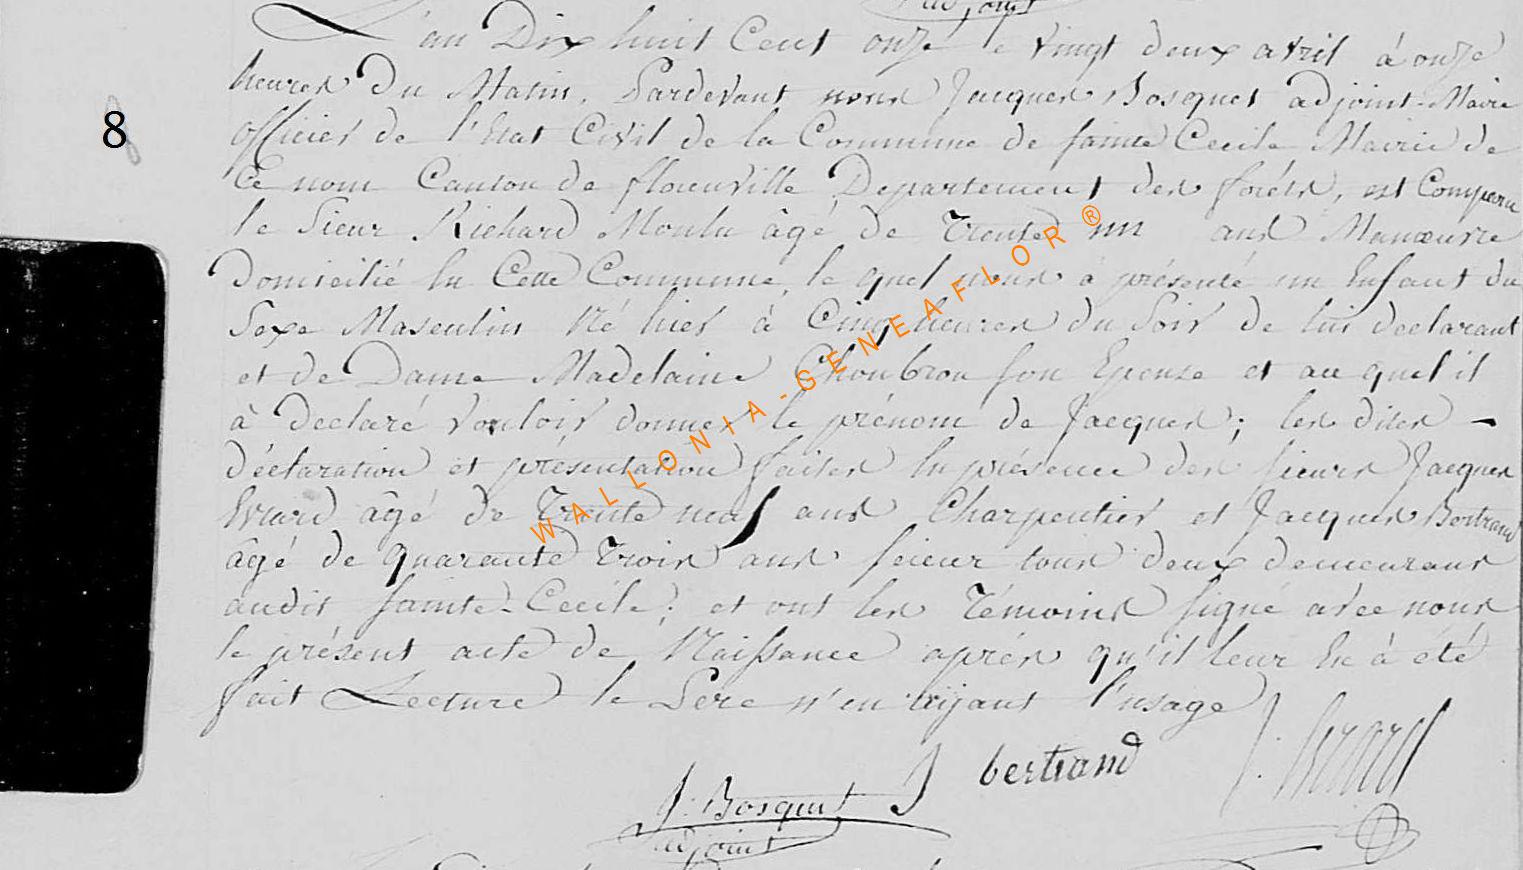 adjoint
L'an Dix huit Cent onze le vingt deux avril à onze
heures Du Matin. Pardevant nous Jacques Bosquet adjoint-Maire
officier de l'Etat Civil de la Commune de sainte Cecile Mairie de
Ce nom Canton de florenville Departement des forêts, est Comparu
le Sieur Richard Moulu âgé de Trente un ans Manœuvre
Domicilié En Cette Commune, le quel nous à présenté un Enfant du
Sexe Masculin Né hier à Cinq heures du Soir de lui declarant
et de Dame Madelaine Choubrou son Epouse et au quel il
à Declaré vouloir donner le prénom de Jacques; les dites -
déclaration et présentation faites En présence des sieurs Jacques
Evrard âgé de Trente neuf ans Charpentier et Jacques Bertrand
âgé de quarante Trois ans scieur tous deux demeurans
audit sainte-Cecile; et ont les Témoins signé avec nous
le présent acte de Naissance après qu'il leur En à été
fait Lecture le Pere n'en aijant l'usage
J. Evrard
J bertrand
J. Bosquet
adjoint
8
WALLONIA-GENEAFLOR®